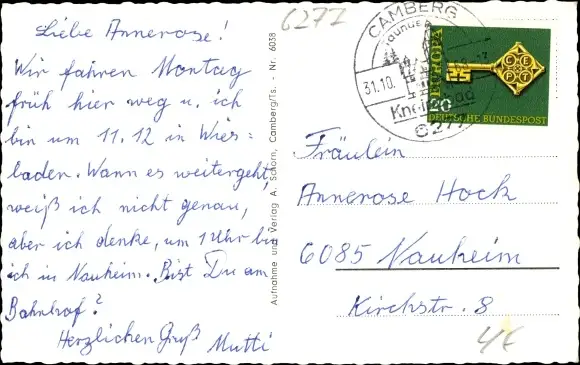 Liebe Annerose!
Wir fahren Montag
früh hier weg u. ich
bin um 11.12 in Wies-
baden. Wann es weitergeht,
weiß ich nicht genau,
aber ich denke, um 1 Uhr bin
ich in Nauheim. Bist Du am
Bahnhof?
Herzlichen Gruß
Mutti
Aufnahme und Verlag A. Schorn, Camberg/Ts. - Nr. 6038
6277
CAMBERG
TAUNUS
31.10.
Kneippbad
6277
EUROPA
CEPT
20
DEUTSCHE BUNDESPOST
Fräulein
Annerose Hock
6085 Nauheim
Kirchstr. 8